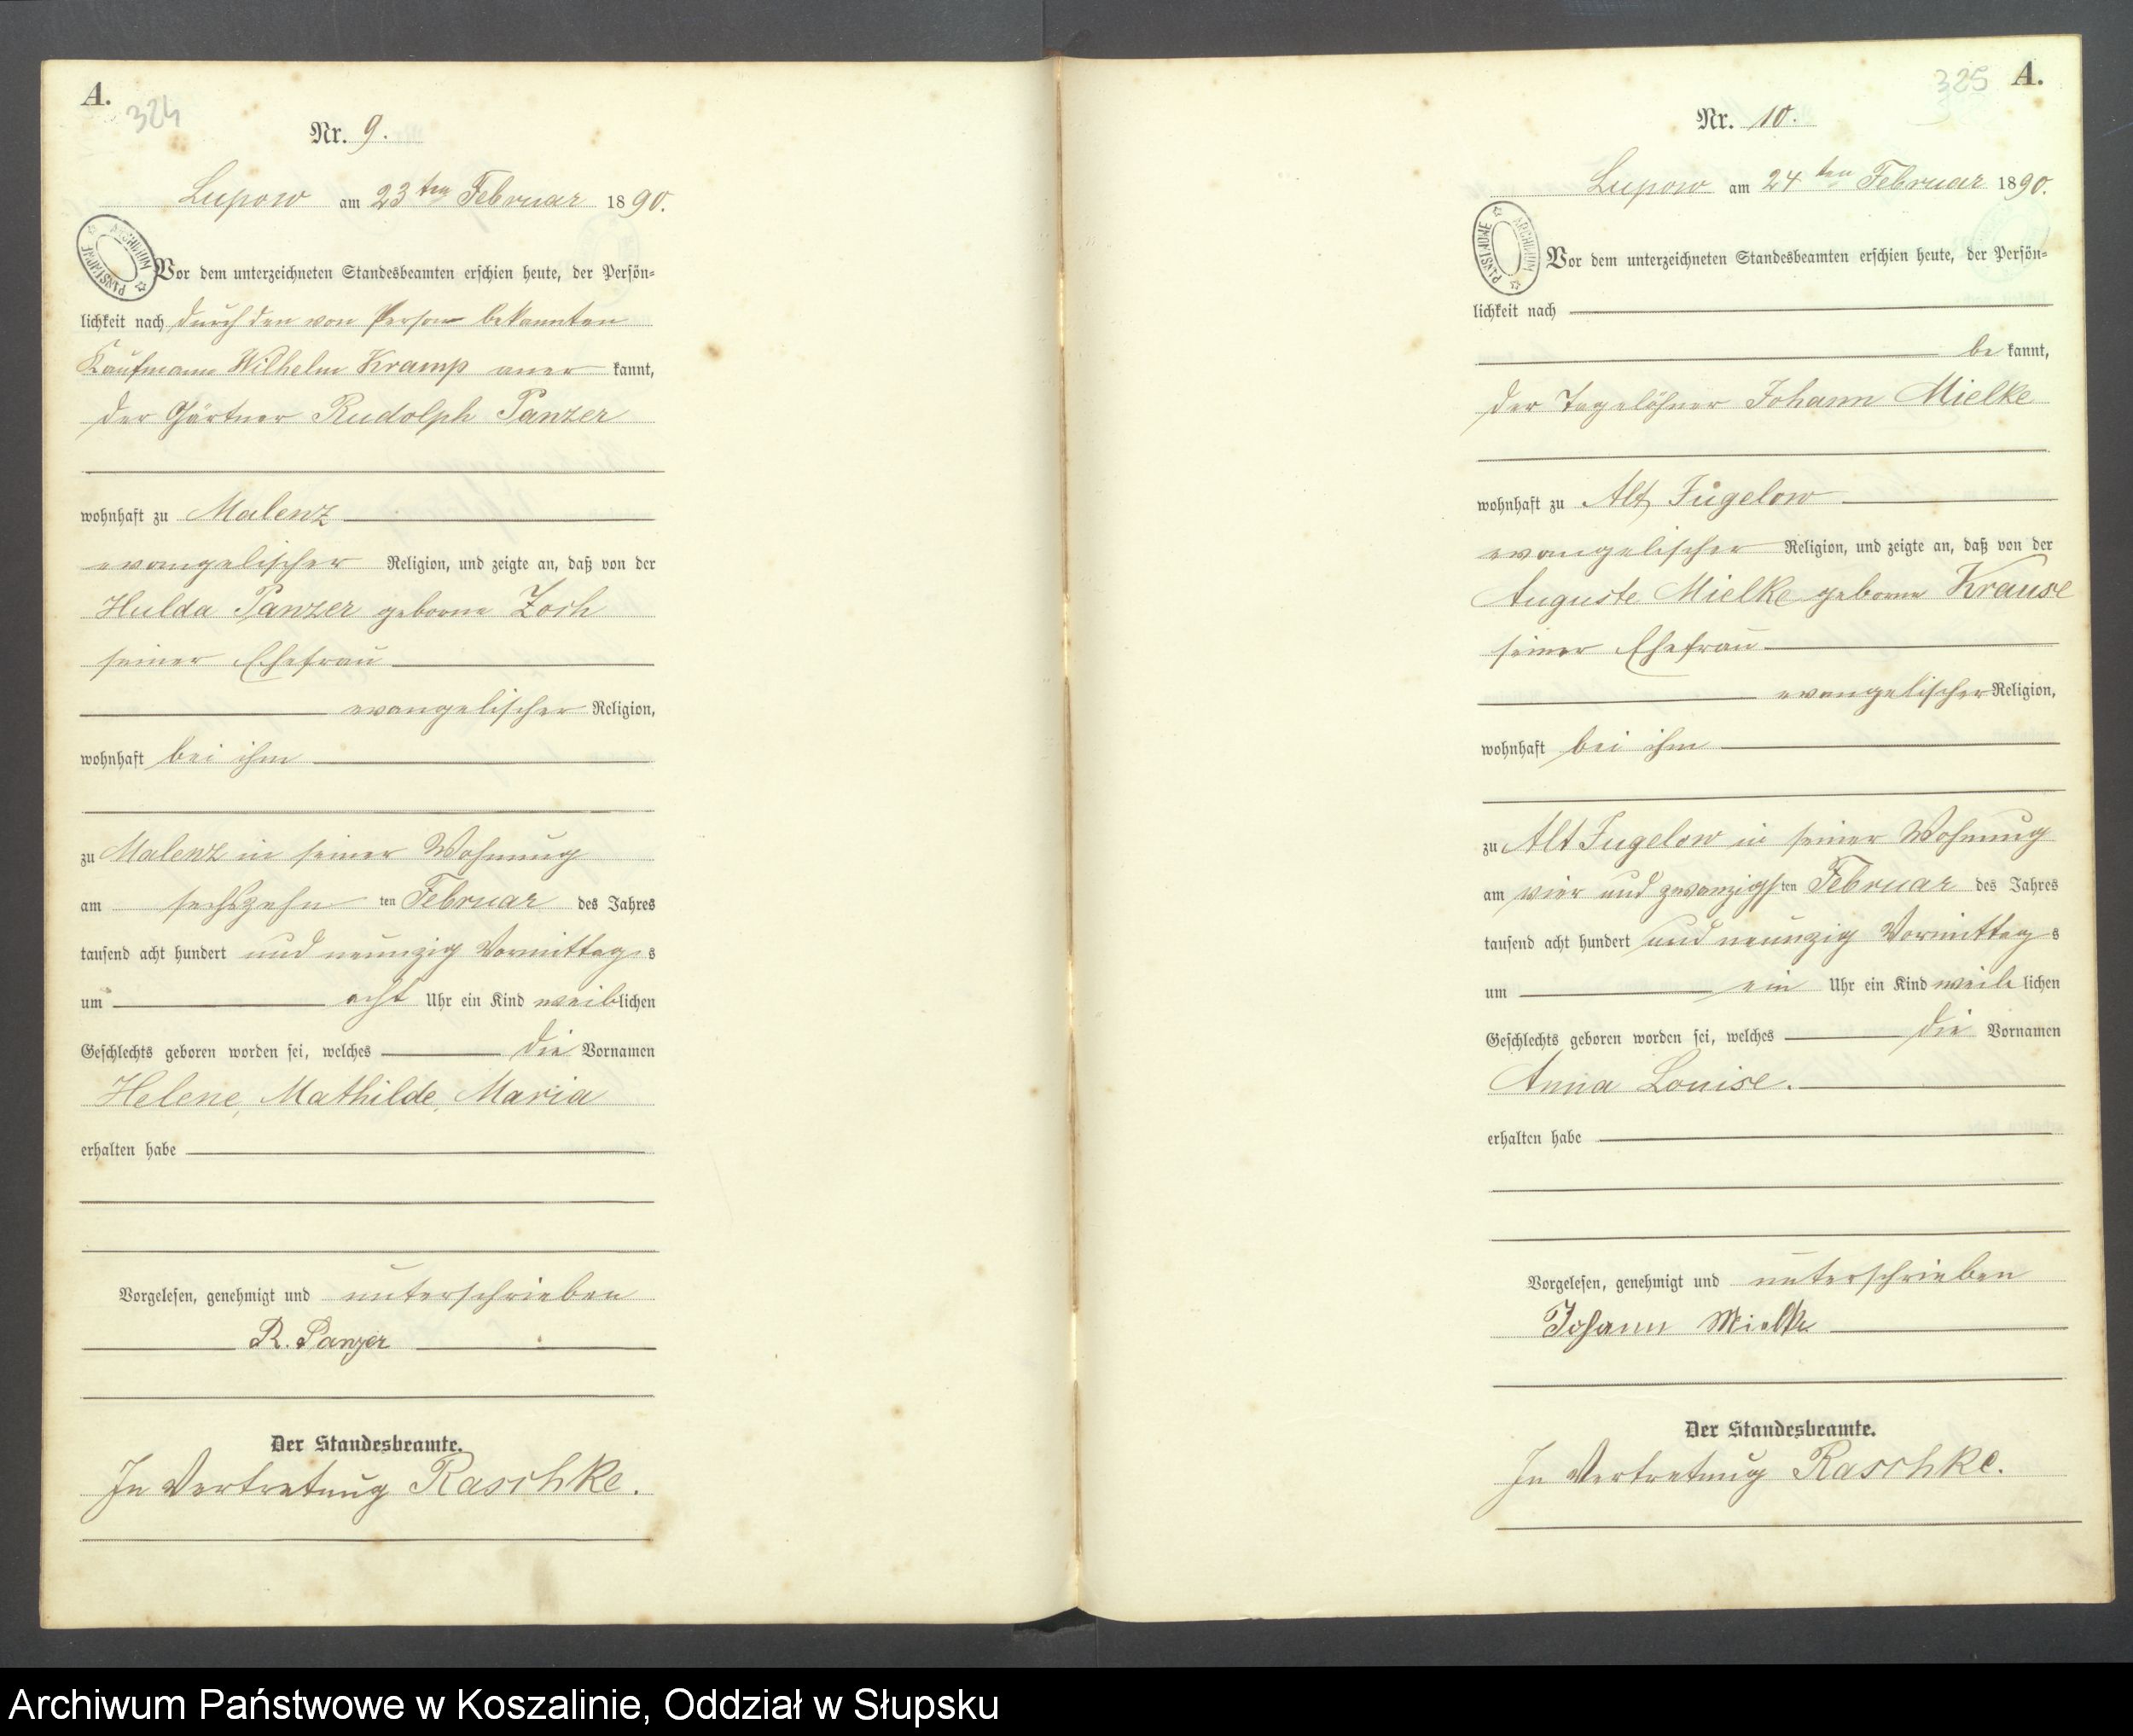 A.
324
Nr. 9.
Lupow am 23ten Februar 1890.
Vor dem unterzeichneten Standesbeamten erschien heute, der Persön=
lichkeit nach durch den von Person bekannten
Kaufmann Wilhelm Kramp aner kannt,
der Gärtner Rudolph Panzer
wohnhaft zu Malenz
evangelischer Religion, und zeigte an, daß von der
Hulda Panzer geborne Zoch
seiner Ehefrau
evangelischer Religion,
wohnhaft bei ihm
zu Malenz in seiner Wohnung
am sechszehn ten Februar des Jahres
tausend acht hundert und neunzig Vormittags
um acht Uhr ein Kind weiblichen
Geschlechts geboren worden sei, welches die Vornamen
Helene, Mathilde, Maria
erhalten habe
Vorgelesen, genehmigt und unterschrieben
R. Panzer
Der Standesbeamte.
In Vertretung Raschke.
ARCHIWUM PAŃSTWOWE
325 A.
Nr. 10.
Lupow am 24ten Februar 1890.
Vor dem unterzeichneten Standesbeamten erschien heute, der Persön=
lichkeit nach
be kannt,
der Tagelöhner Johann Mielke
wohnhaft zu Alt Jugelow
evangelischer Religion, und zeigte an, daß von der
Auguste Mielke geborne Krause
seiner Ehefrau
evangelischer Religion,
wohnhaft bei ihm
zu Alt Jugelow in seiner Wohnung
am vier und zwanzigsten Februar des Jahres
tausend acht hundert und neunzig Vormittags
um ein Uhr ein Kind weiblichen
Geschlechts geboren worden sei, welches die Vornamen
Anna Louise.
erhalten habe
Vorgelesen, genehmigt und unterschrieben
Johann Mielke
Der Standesbeamte.
In Vertretung Raschke.
ARCHIWUM PAŃSTWOWE
Archiwum Państwowe w Koszalinie, Oddział w Słupsku